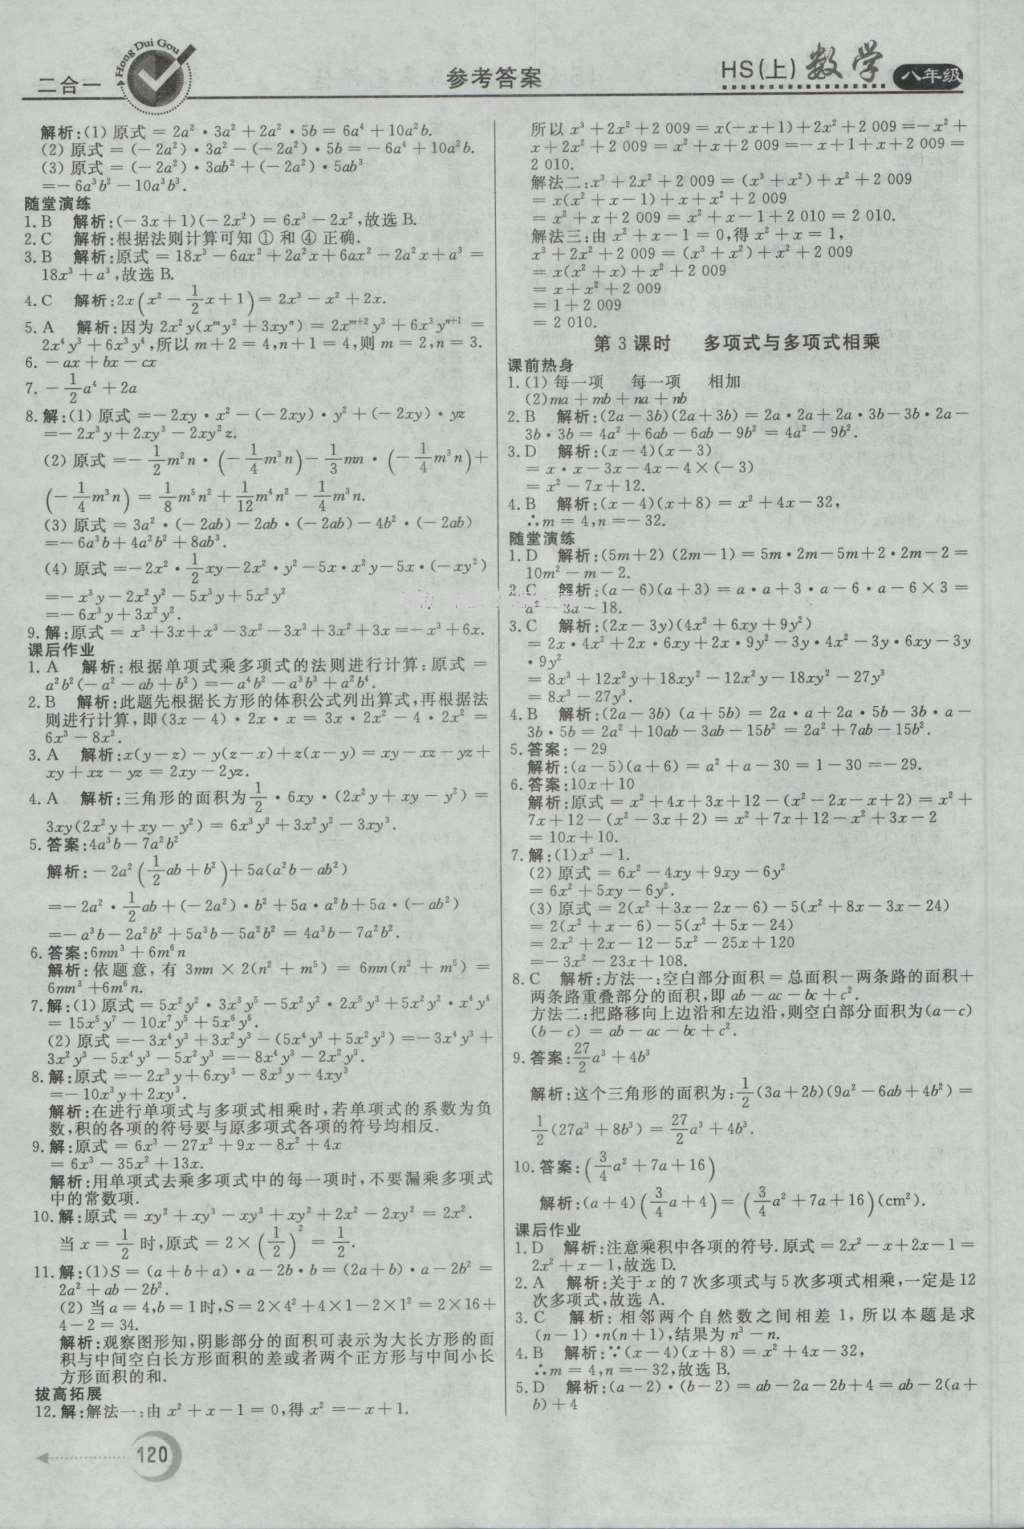 二合一
Hong Dui Gou
参考答案
HS(上) 数学 八年级
解析:(1)原式=2a²·3a²+2a²·5b=6a⁴+10a²b.
(2)原式=(-2a²)·3a²-(-2a²)·5b=-6a⁴+10a²b.
(3)原式=(-2a²)·3ab²+(-2a²)·5ab³
=-6a³b²-10a³b³.
随堂演练
1.B 解析:(-3x+1)(-2x²)=6x³-2x²,故选B.
2.C 解析:根据法则计算可知①和④正确.
3.B 解析:原式=18x³-6ax²+2a²x+6ax²-2a²x+a³=
18x³+a³,故选B.
4.C 解析:2x(x²-1/2x+1)=2x³-x²+2x.
5.A 解析:因为2x²y(xᵐy²+3xyⁿ)=2xᵐ⁺²y³+6x³yⁿ⁺¹=
2x⁴y³+6x³y⁴,所以m+2=4,n+1=4,则m=2,n=3.
6.-ax+bx-cx
7.-1/2a⁴+2a
8.解:(1)原式=-2xy·x²-(-2xy)·y²+(-2xy)·yz
=-2x³y+2xy³-2xy²z.
(2)原式=-1/2m²n·(-1/4m³n)-1/3mn·(-1/4m³n)+
(-1/4m³n)=1/8m⁵n²+1/12m⁴n²-1/4m³n.
(3)原式=3a²·(-2ab)-2ab·(-2ab)-4b²·(-2ab)
=-6a³b+4a²b²+8ab³.
(4)原式=-2x²·1/2xy-2x²·y²-5x·x²y-5x·(-xy²)
=-x³y-2x²y²-5x³y+5x²y²
=-6x³y+3x²y².
9.解:原式=x³+3x+x³-3x²-3x³+3x²+3x=-x³+6x.
课后作业
1.A 解析:根据单项式乘多项式的法则进行计算:原式=
a²b²(-a²-ab+b²)=-a⁴b²-a³b³+a²b⁴.
2.B 解析:此题先根据长方形的体积公式列出算式,再根据法
则进行计算,即(3x-4)·2x·x=3x·2x²-4·2x²=
6x³-8x².
3.A 解析:x(y-z)-y(z-x)+z(x-y)=xy-xz-yz+
xy+xz-yz=2xy-2yz.
4.A 解析:三角形的面积为1/2·6xy·(2x²y+xy-y²)=
3xy(2x²y+xy-y²)=6x³y²+3x²y²-3xy³.
5.答案:4a³b-7a²b²
解析:-2a²(1/2ab+b²)+5a(a²b-ab²)
=-2a²·1/2ab+(-2a²)·b²+5a·a²b+5a·(-ab²)
=-a³b-2a²b²+5a³b-5a²b²=4a³b-7a²b².
6.答案:6mn³+6m⁶n
解析:依题意,有3mn×2(n²+m⁵)=6mn(n²+m⁵)=
6mn³+6m⁶n.
7.解:(1)原式=5x²y²·3x³y⁵-5x²y²·2x⁵y³+5x²y²·x⁴y⁴
=15x⁵y⁷-10x⁷y⁵+5x⁶y⁶.
(2)原式=-3x⁴y³+3x²y³-(5x⁴y³+5x²y³)=-3x⁴y³+
3x²y³-5x⁴y³-5x²y³=-8x⁴y³-2x²y³.
8.解:原式=-2x³y+6xy³-8x³y-4xy³
=-10x³y+2xy³.
解析:在进行单项式与多项式相乘时,若单项式的系数为负
数,积的各项的符号要与原多项式各项的符号均相反.
9.解:原式=6x³-27x²+9x-8x²+4x
=6x³-35x²+13x.
解析:用单项式去乘多项式中的每一项时,不要漏乘多项式
中的常数项.
10.解:原式=xy²+xy³-xy³+xy²+2x²-2xy²=2x².
当x=1/2时,原式=2×(1/2)²=1/2.
11.解:(1)S=(a+b+a)·a-2b·b=(2a+b)·a-2b²=
2a²+ab-2b².
(2)当a=4,b=1时,S=2×4²+4×1-2×1²=2×16+
4-2=34.
解析:观察图形知,阴影部分的面积可表示为大长方形的面
积与中间空白长方形面积的差或者两个正方形与中间小长
方形面积的和.
拔高拓展
12.解:解法一:由x²+x-1=0,得x²=-x+1.
120
所以x³+2x²+2 009=x(-x+1)+2x²+2 009=-x²+
x+2x²+2 009=x²+x+2 009=-x+1+x+2 009=
2 010.
解法二:x³+2x²+2 009=(x³+x²)+x²+2 009
=x(x²+x-1)+x+x²+2 009
=x²+x+2 009=x²+x-1+2 010=2 010.
解法三:由x²+x-1=0,得x²+x=1,
x³+2x²+2 009=(x³+x²)+x²+2 009
=x(x²+x)+x²+2 009
=x+x²+2 009
=1+2 009
=2 010.
第3课时 多项式与多项式相乘
课前热身
1.(1)每一项 每一项 相加
(2)ma+mb+na+nb
2.B 解析:(2a-3b)(2a+3b)=2a·2a+2a·3b-3b·2a-
3b·3b=4a²+6ab-6ab-9b²=4a²-9b².
3.D 解析:(x-4)(x-3)
=x·x-3x-4x-4×(-3)
=x²-7x+12.
4.B 解析:(x-4)(x+8)=x²+4x-32,
∴m=4,n=-32.
随堂演练
1.D 解析:(5m+2)(2m-1)=5m·2m-5m+2·2m-2=
10m²-m-2.
2.C 解析:(a-6)(a+3)=a·a+3·a-6·a-6×3=
a²-3a-18.
3.C 解析:(2x-3y)(4x²+6xy+9y²)
=2x·4x²+2x·6xy+2x·9y²-3y·4x²-3y·6xy-3y
·9y²
=8x³+12x²y+18xy²-12x²y-18xy²-27y³
=8x³-27y³.
4.B 解析:(2a-3b)(a+5b)=2a·a+2a·5b-3b·a-
3b·5b=2a²+10ab-3ab-15b²=2a²+7ab-15b².
5.答案:-29
解析:(a-5)(a+6)=a²+a-30=1-30=-29.
6.答案:10x+10
解析:原式=x²+4x+3x+12-(x²-2x-x+2)=x²+
7x+12-(x²-3x+2)=x²+7x+12-x²+3x-2
=10x+10.
7.解:(1)x³-1.
(2)原式=6x²-4xy+9xy-6y²
=6x²+5xy-6y².
(3)原式=2(x²+3x-2x-6)-5(x²+8x-3x-24)
=2(x²+x-6)-5(x²+5x-24)
=2x²+2x-12-5x²-25x+120
=-3x²-23x+108.
8.C 解析:方法一:空白部分面积=总面积-两条路的面积+
两条路重叠部分的面积,即ab-ac-bc+c².
方法二:把路移向上边沿和左边沿,则空白部分面积为(a-c)
(b-c)=ab-ac-bc+c².
9.答案:27/2a³+4b³
解析:这个三角形的面积为:1/2(3a+2b)(9a²-6ab+4b²)=
1/2(27a³+8b³)=27/2a³+4b³.
10.答案:(3/4a²+7a+16)
解析:(a+4)(3/4a+4)=(3/4a²+7a+16)(cm²).
课后作业
1.D 解析:注意乘积中各项的符号.原式=2x²-x+2x-1=
2x²+x-1,故选D.
2.A 解析:关于x的7次多项式与5次多项式相乘,一定是12
次多项式,故选A.
3.C 解析:相邻两个自然数之间相差1,所以本题是求
(n-1)·n(n+1),结果为n³-n.
4.B 解析:∵(x-4)(x+8)=x²+4x-32,
∴m=4,n=-32,故选B.
5.D 解析:(a-2)·(b-2)=ab-2a-2b+4=ab-2(a+
b)+4